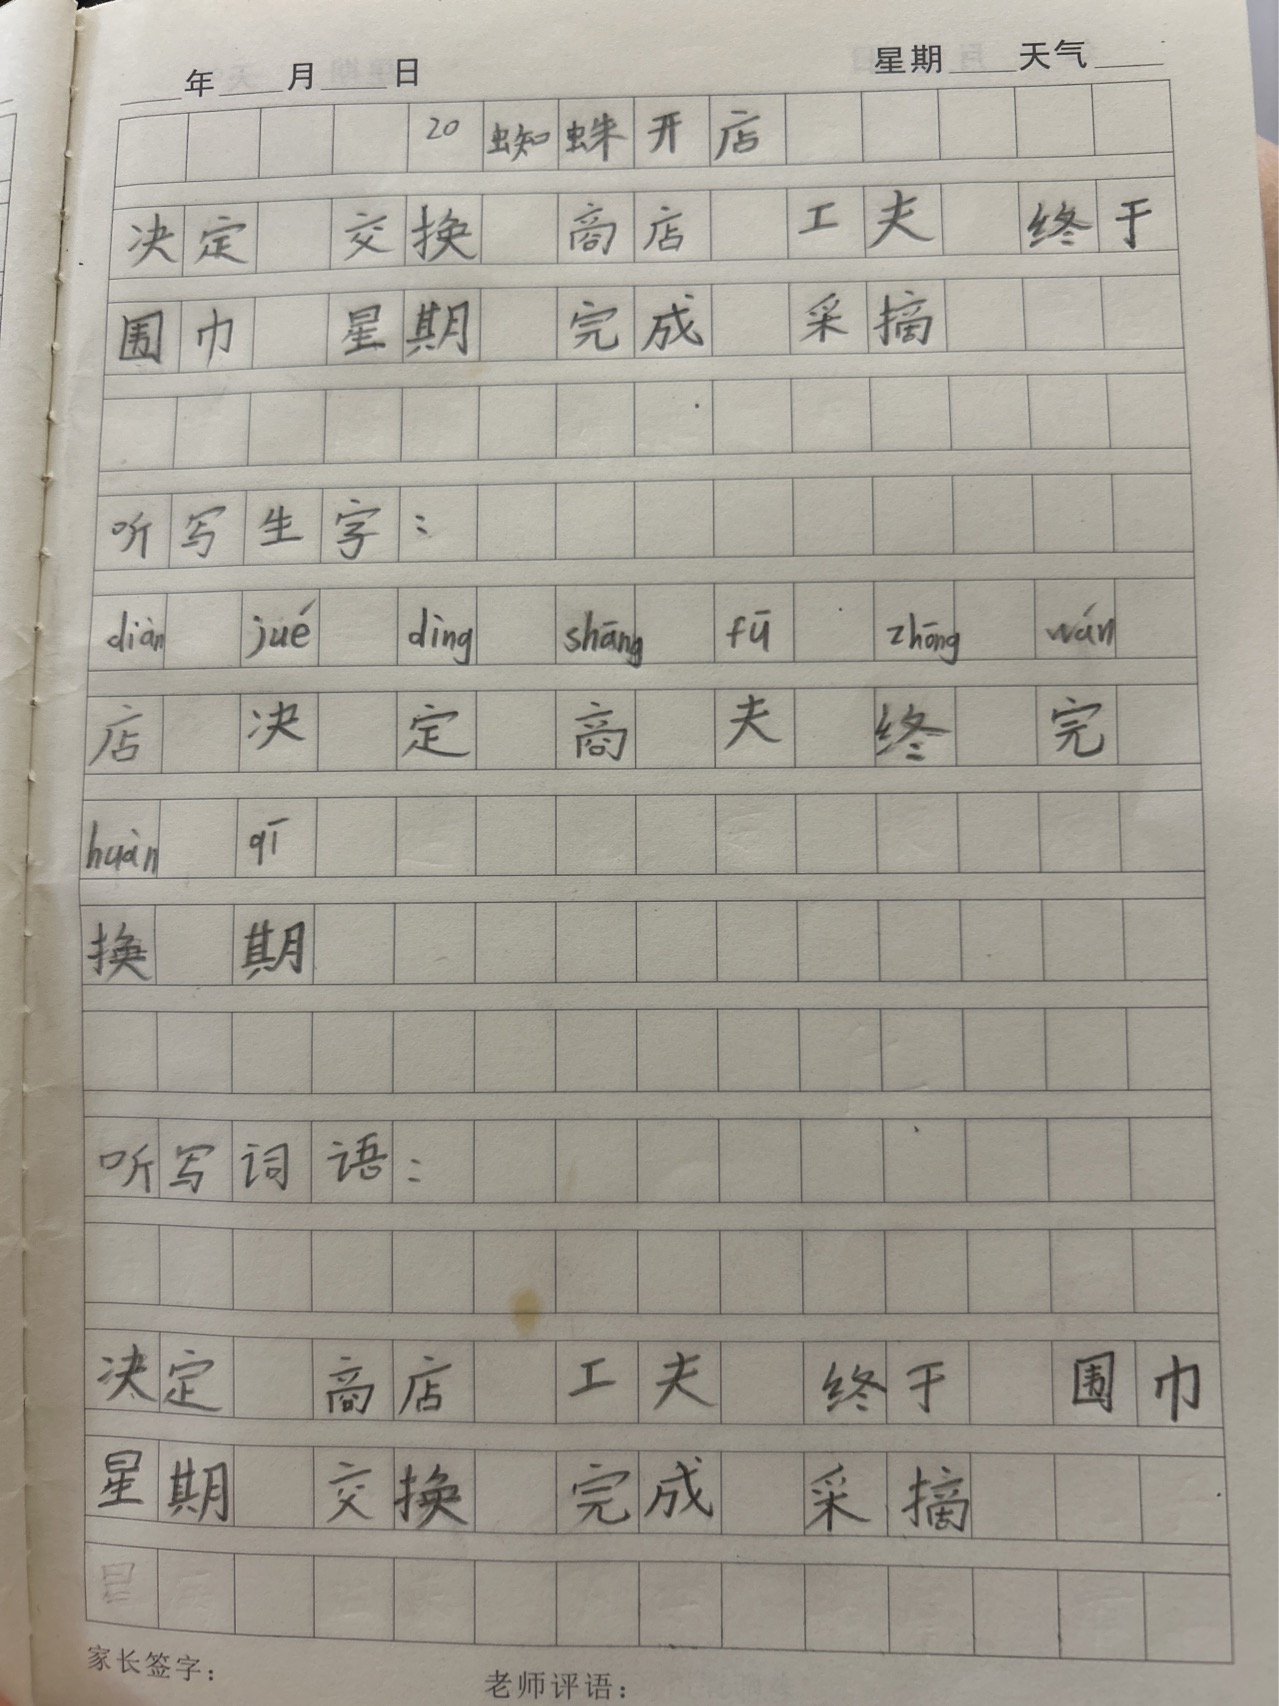 年 月 日 星期 天气
20 蜘蛛开店
决定 交换 商店 工夫 终于
围巾 星期 完成 采摘
听写生字：
diàn jué dìng shāng fū zhōng wán
店 决 定 商 夫 终 完
huàn qī
换 期
听写词语：
决定 商店 工夫 终于 围巾
星期 交换 完成 采摘
家长签字： 老师评语：